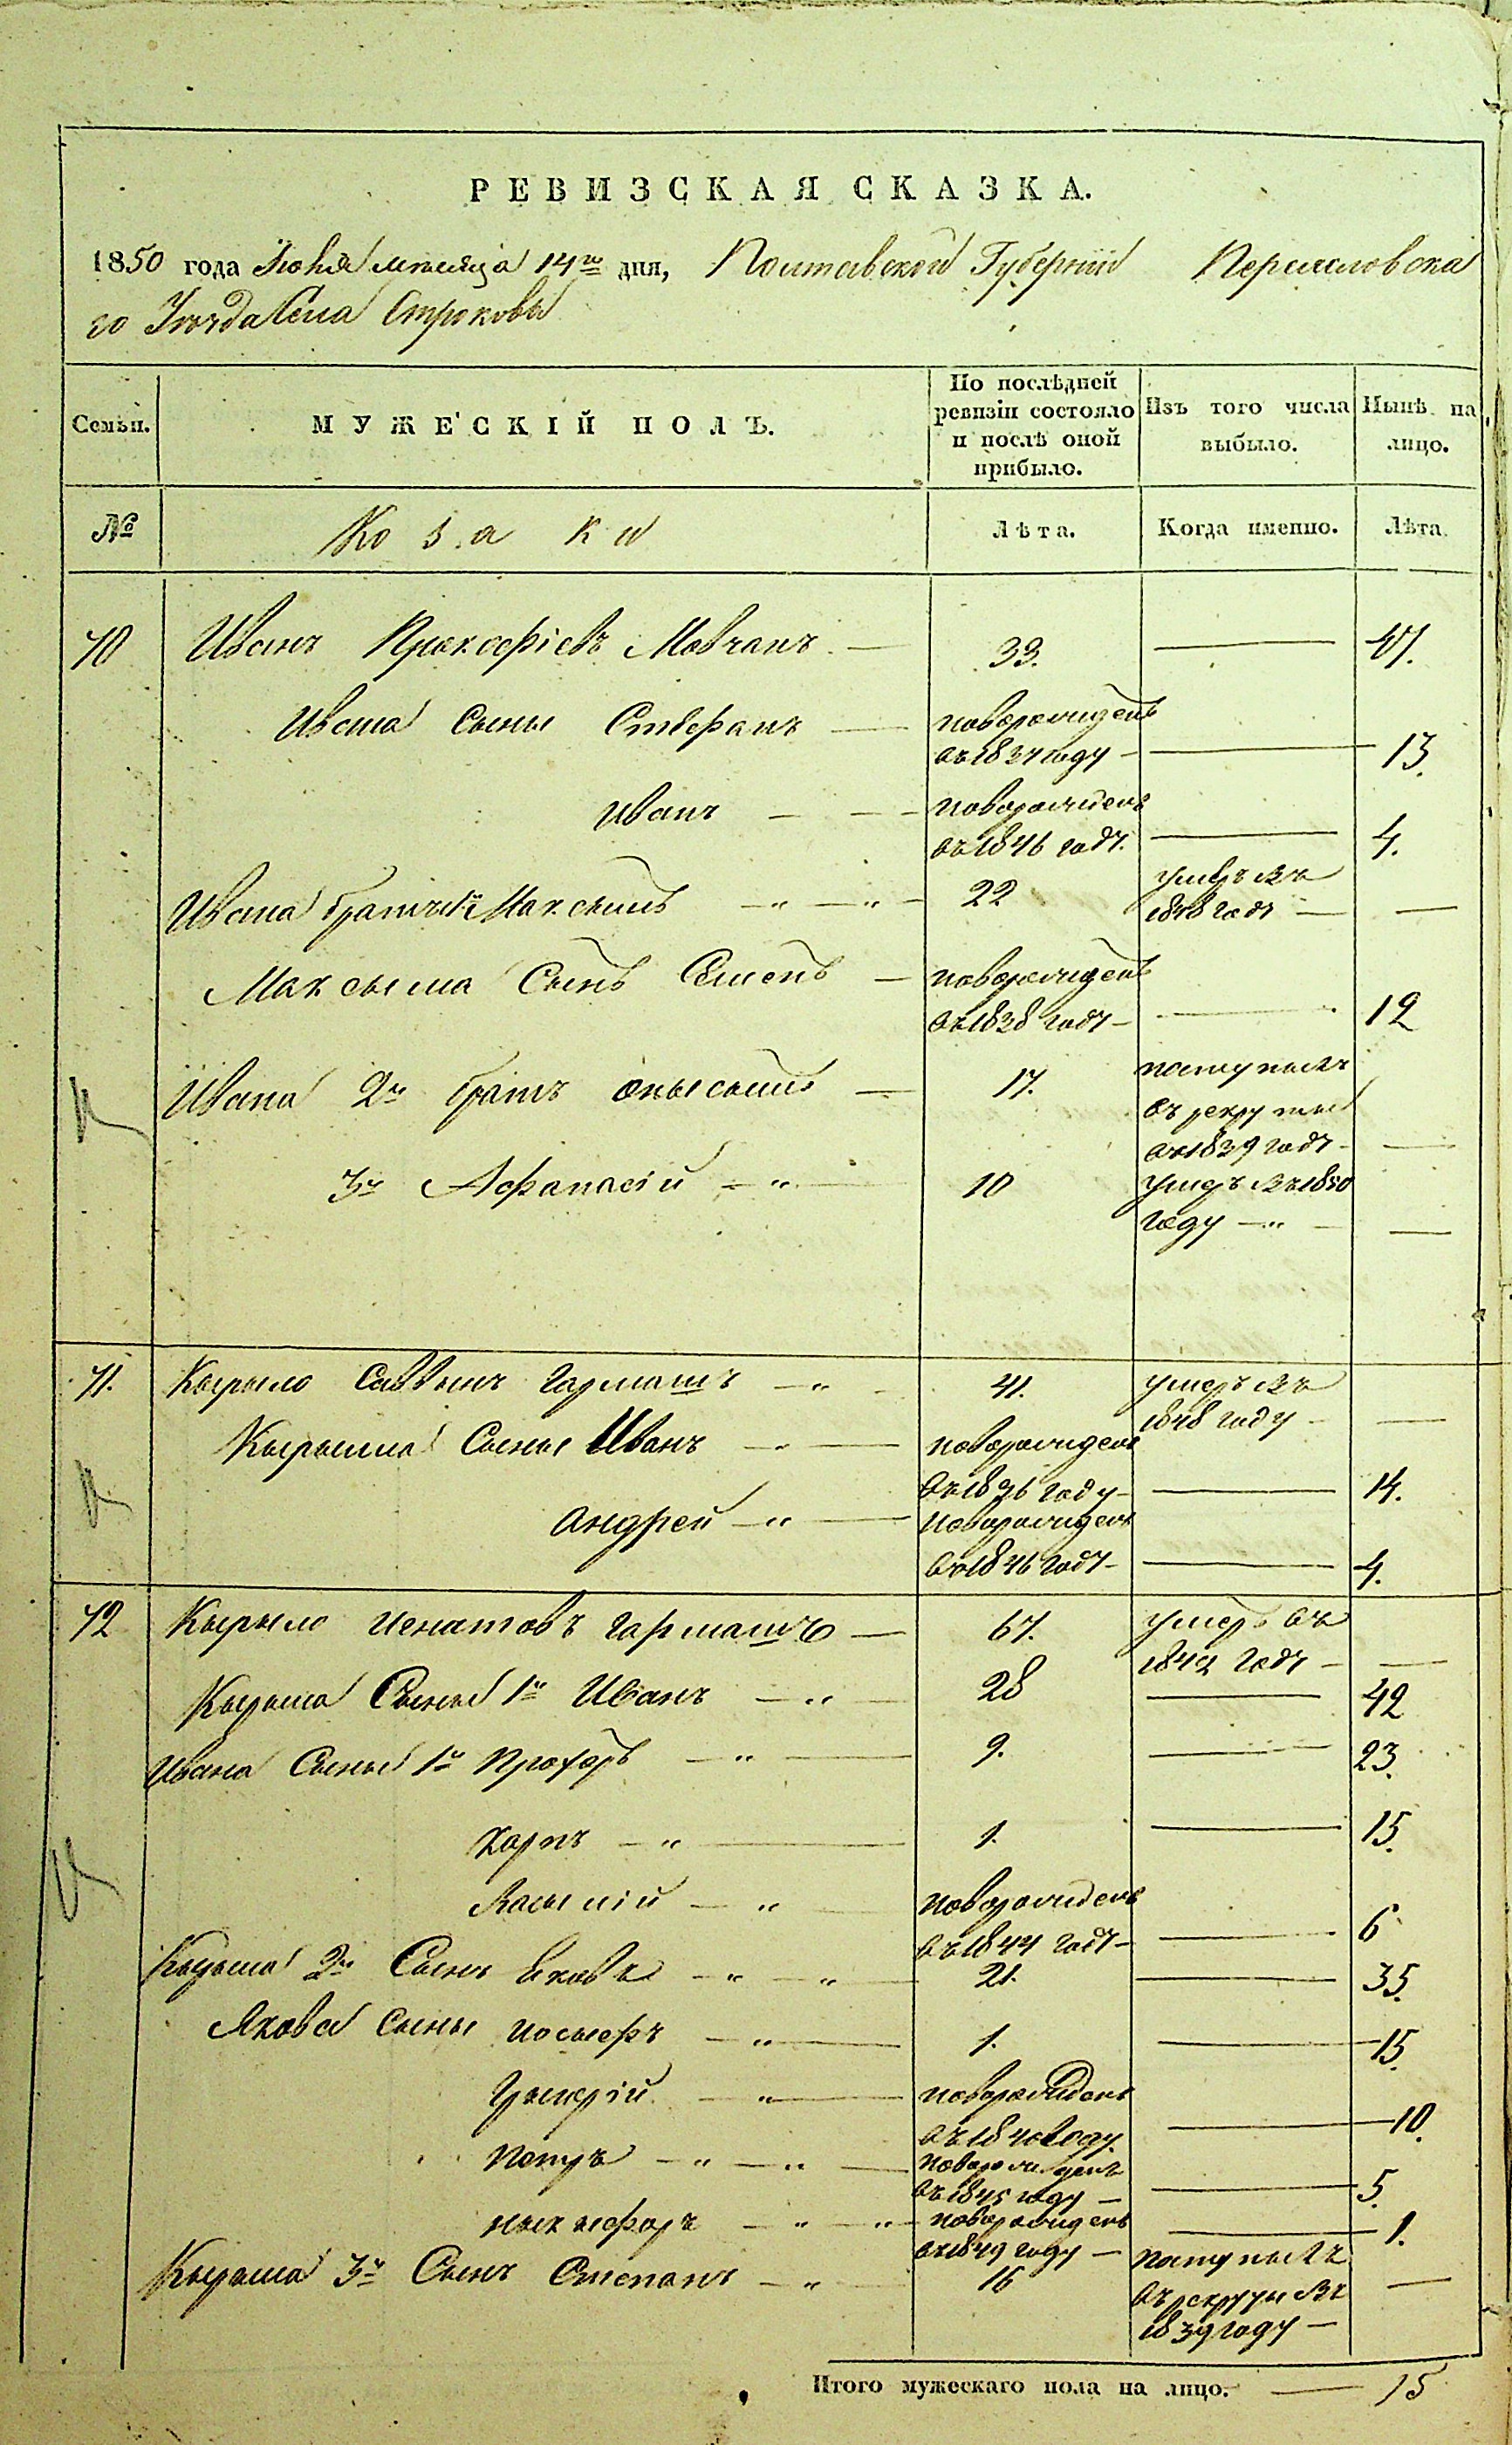 РЕВИЗСКАЯ СКАЗКА.
1850 года Июня мѣсяца 14го дня, Полтавской Губерніи Переяславска
го Уѣзда Села Строковы
Семьи.
МУЖЕСКІЙ ПОЛЪ.
По послѣдней
ревизіи состояло
и послѣ оной
прибыло.
Изъ того числа
выбыло.
Нынѣ на
лицо.
№
Козаки
Лѣта.
Когда именно.
Лѣта.
70 Иванъ Прокофіевъ Мовчанъ — 33. — 47.
Ивана Сыны Стефанъ — новорожденъ
въ 1837 году — — 13.
Иванъ — — — новорожденъ
въ 1846 году. — 4.
Ивана братъ 1й Максымъ — „ — „ — 22 умеръ въ
1848 году — —
Максыма Сынъ Семенъ — новорожденъ
въ 1838 году — — 12
Ивана 2й братъ Онысымъ — 17. поступылъ
въ рекруты
въ 1839 году — —
3й Афанасій — „ — 10 умеръ въ 1850
году — „ — —
71. Кырыло Саввынъ Гармашъ — „ — 41. умеръ въ
1848 году — —
Кырылла Сыны Иванъ — „ — новорожденъ
въ 1836 году — — 14.
Андрей — „ — новорожденъ
въ 1846 году — — 4.
72 Кырыло Игнатовъ Гармашъ — 67. умеръ въ
1842 году — —
Кырыла Сыны 1й Иванъ — „ — 28 — 42
Ивана Сыны 1й Прохоръ — „ — 9. — 23.
Карпъ — „ — 1. — 15.
Васылій — „ — новорожденъ
въ 1844 году — — 6
Кырыла 2й Сынъ Яковъ — „ — „ — 21. — 35.
Якова Сыны Иосыфъ — „ — 1. — 15.
Грыгорій — „ — новорожденъ
въ 1840 году. — 10.
Петръ — „ — „ — новорожденъ
въ 1845 году — — 5.
Ныкыфоръ — „ — „ — новорожденъ
въ 1849 году — — 1.
Кырыла 3й Сынъ Степанъ — „ — 16 поступылъ
въ рекруты въ
1839 году — —
Итого мужескаго пола на лицо. — 15